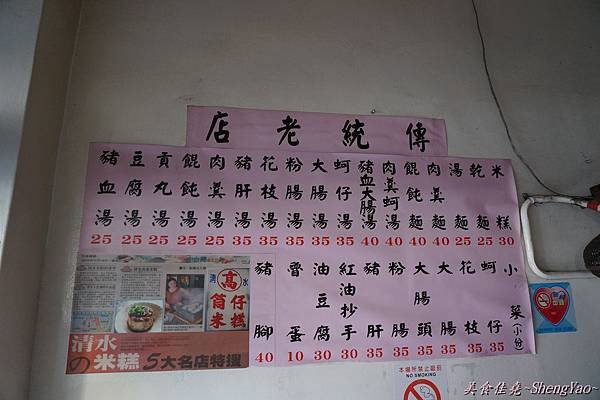 傳統老店
米糕 30
乾麵 25
湯麵 25
肉羹麵 40
餛飩麵 40
肉羹蚵湯 40
豬血大腸湯 40
蚵仔湯 35
大腸湯 35
粉腸湯 35
花枝湯 35
豬肝湯 35
肉羹湯 35
餛飩湯 25
貢丸湯 25
豆腐湯 25
豬血湯 25
小菜(小份)
蚵仔 35
花枝 35
大腸 35
大腸頭 35
粉腸 35
豬肝 35
紅油抄手 35
油豆腐 30
魯蛋 10
豬腳 40
清水
高
筒仔
米糕
清水
の米糕 5大名店特搜
本場所禁止吸菸
NO SMOKING
美食佳堯~ShengYao~